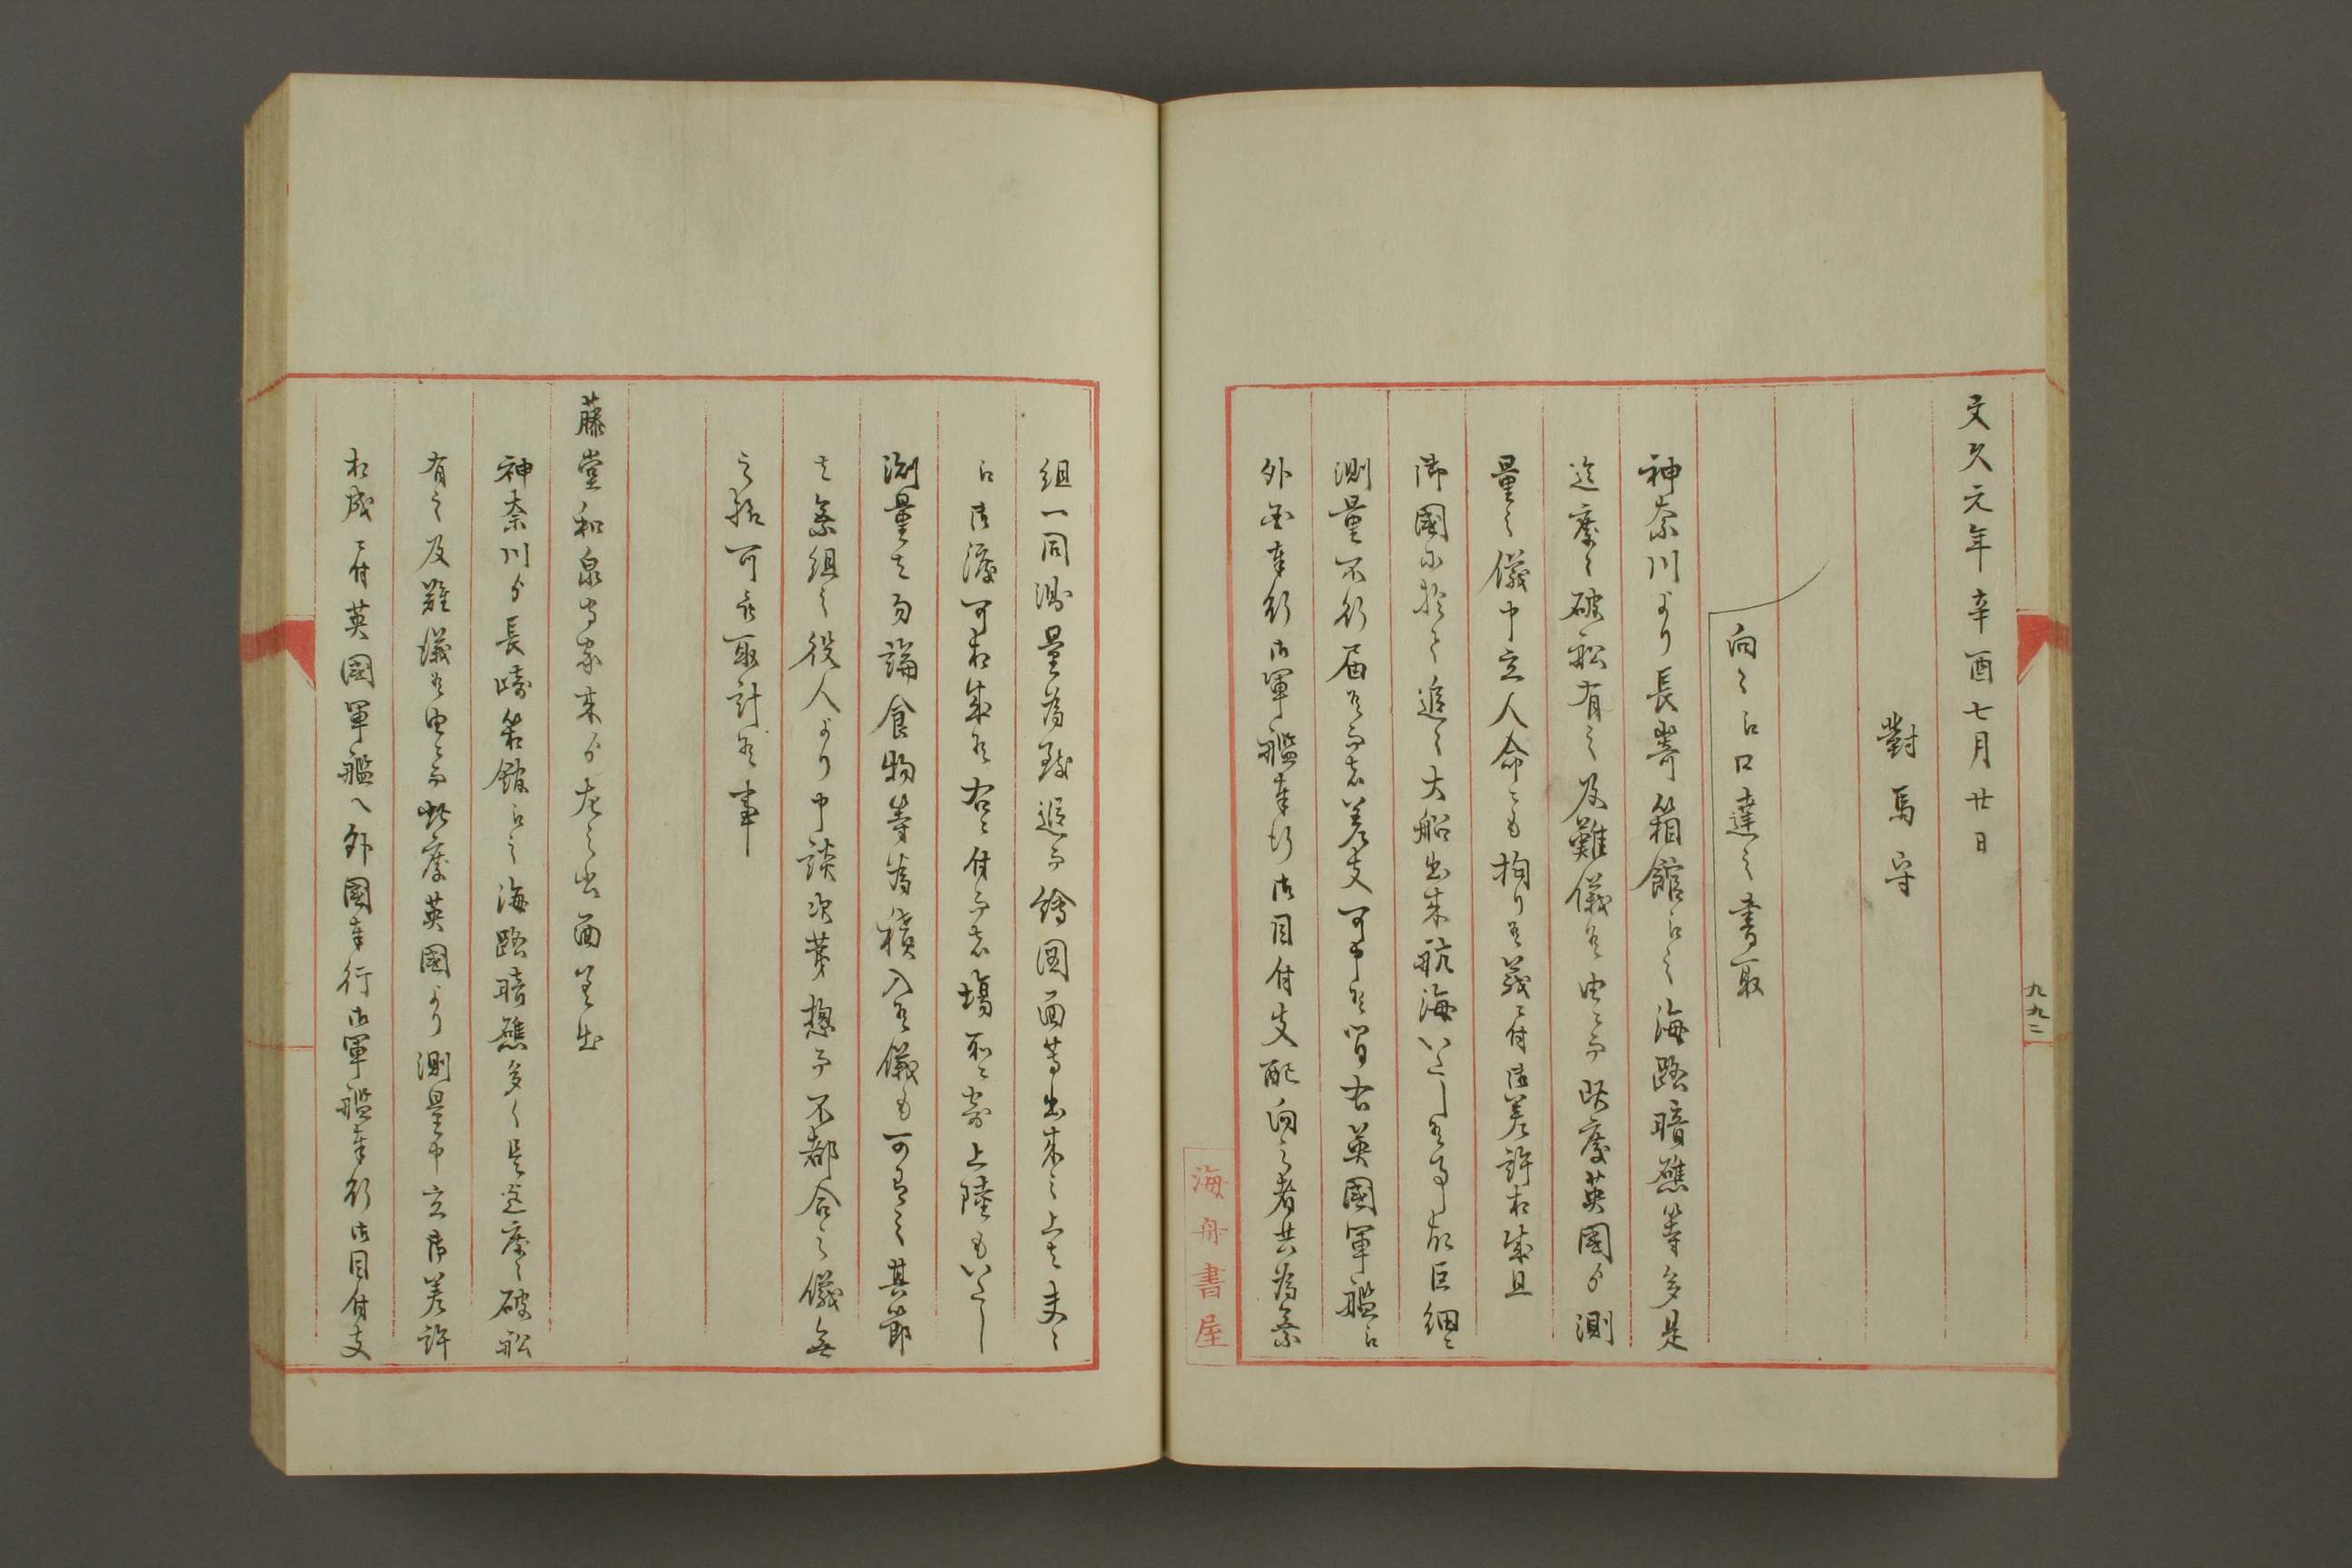 九九二
文久元年辛酉七月廿日
對馬守
向々江口達之書取
神奈川より長崎箱館江之海路暗礁等多是
迄度々破船有之及難儀候由ニ而此度英国ゟ測
量之儀申立人命ニも拘り候義ニ付御差許相成且
御國ニ於ても追々大船出来航海いたし候事故巨細ニ
測量不行届候而者差支可申候間右英國軍艦江
外国奉行御軍艦奉行御目付支配向之者共為乗
海舟書屋
組一同測量為致追而繪図面等出来之上者夫々
江御渡可相成候右ニ付而者場所ニ寄上陸もいたし
測量者勿論食物等為積入候儀も可有之其節
者乗組之役人より申談次第捴而不都合之儀無
之様可被取計候事
藤堂和泉守家来ゟ左之書面差出
神奈川ゟ長崎箱館江之海路暗礁多く是迄度々破船
有之及難儀候由ニ而此度英國より測量申立御差許
相成ニ付英國軍艦へ外國奉行御軍艦奉行御目付支